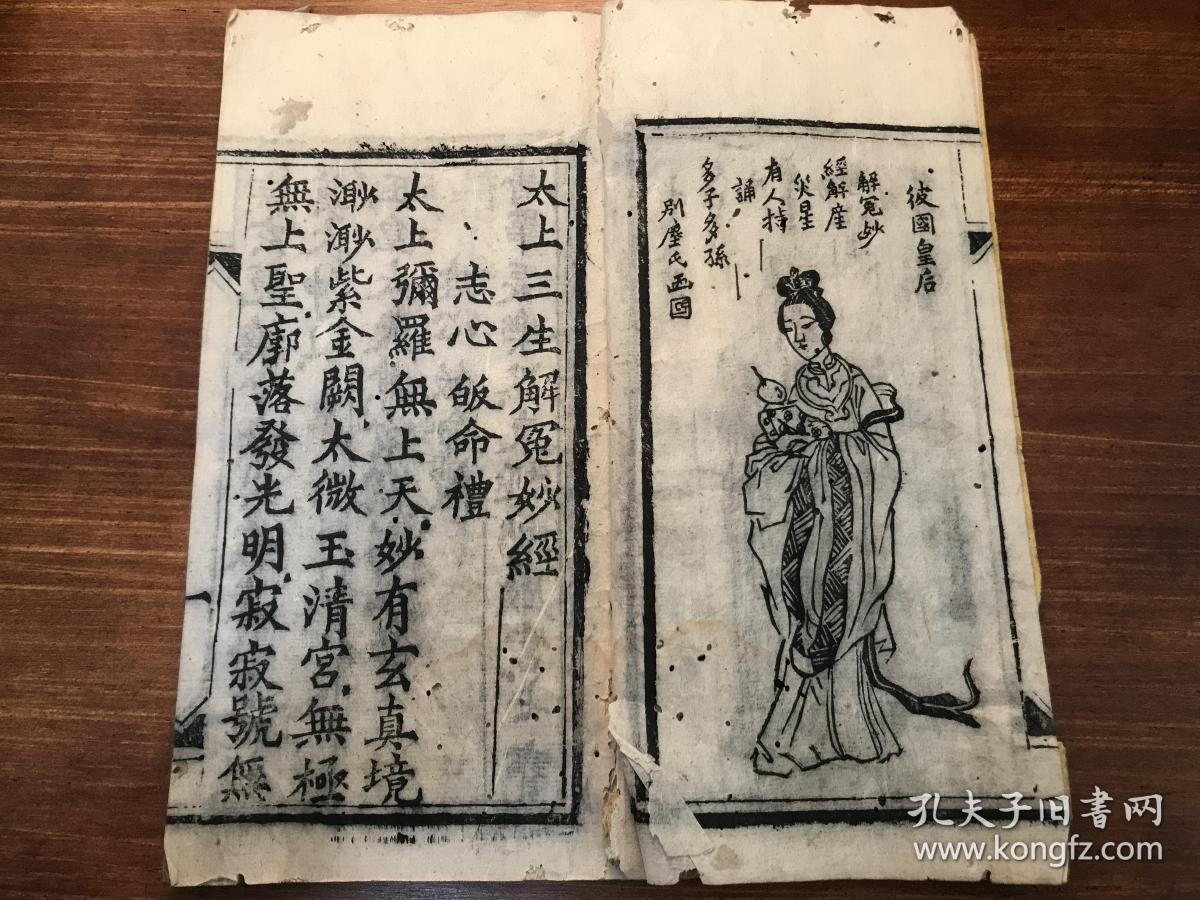 彼國皇后
解冤妙
經解産
災星
有人持
誦
多子多孫
別塵氏画圖
太上三生解冤妙經
志心皈命禮
太上彌羅無上天妙有玄真境
渺渺紫金闕太微玉清宮無極
無上聖廓落發光明寂寂號無
孔夫子旧书网
www.kongfz.com